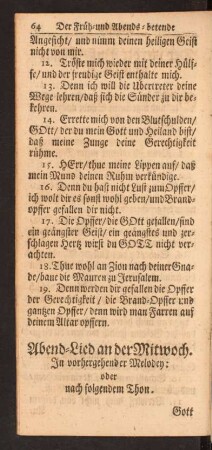 64 Der Früh- und Abends-betende
Angesicht/ und nimm deinen heiligen Geist
nicht von mir.
12. Tröste mich wieder mit deiner Hülf-
fe/ und der freudige Geist enthalte mich.
13. Denn ich will die Ubertreter deine
Wege lehren/ daß sich die Sünder zu dir be-
kehren.
14. Errette mich von den Blutschulden/
GOtt/ der du mein Gott und Heiland bist/
daß meine Zunge deine Gerechtigkeit
rühme.
15. HErr/ thue meine Lippen auf/ daß
mein Mund deinen Ruhm verkündige.
16. Denn du hast nicht Lust zum Opffer/
ich wolt dir es sonst wohl geben/ und Brand-
opffer gefallen dir nicht.
17. Die Opffer/ die GOtt gefallen/ sind
ein geängster Geist/ ein geängstes und zer-
schlagen Hertz wirst du GOTT nicht ver-
achten.
18. Thue wohl an Zion nach deiner Gna-
de/ baue die Mauren zu Jerusalem.
19. Denn werden dir gefallen die Opffer
der Gerechtigkeit/ die Brand-Opffer und
gantzen Opffer/ denn wird man Farren auf
deinem Altar opffern.
Abend-Lied an der Mitwoch.
In vorhergehender Melodey:
oder
nach folgendem Thon.
Gott